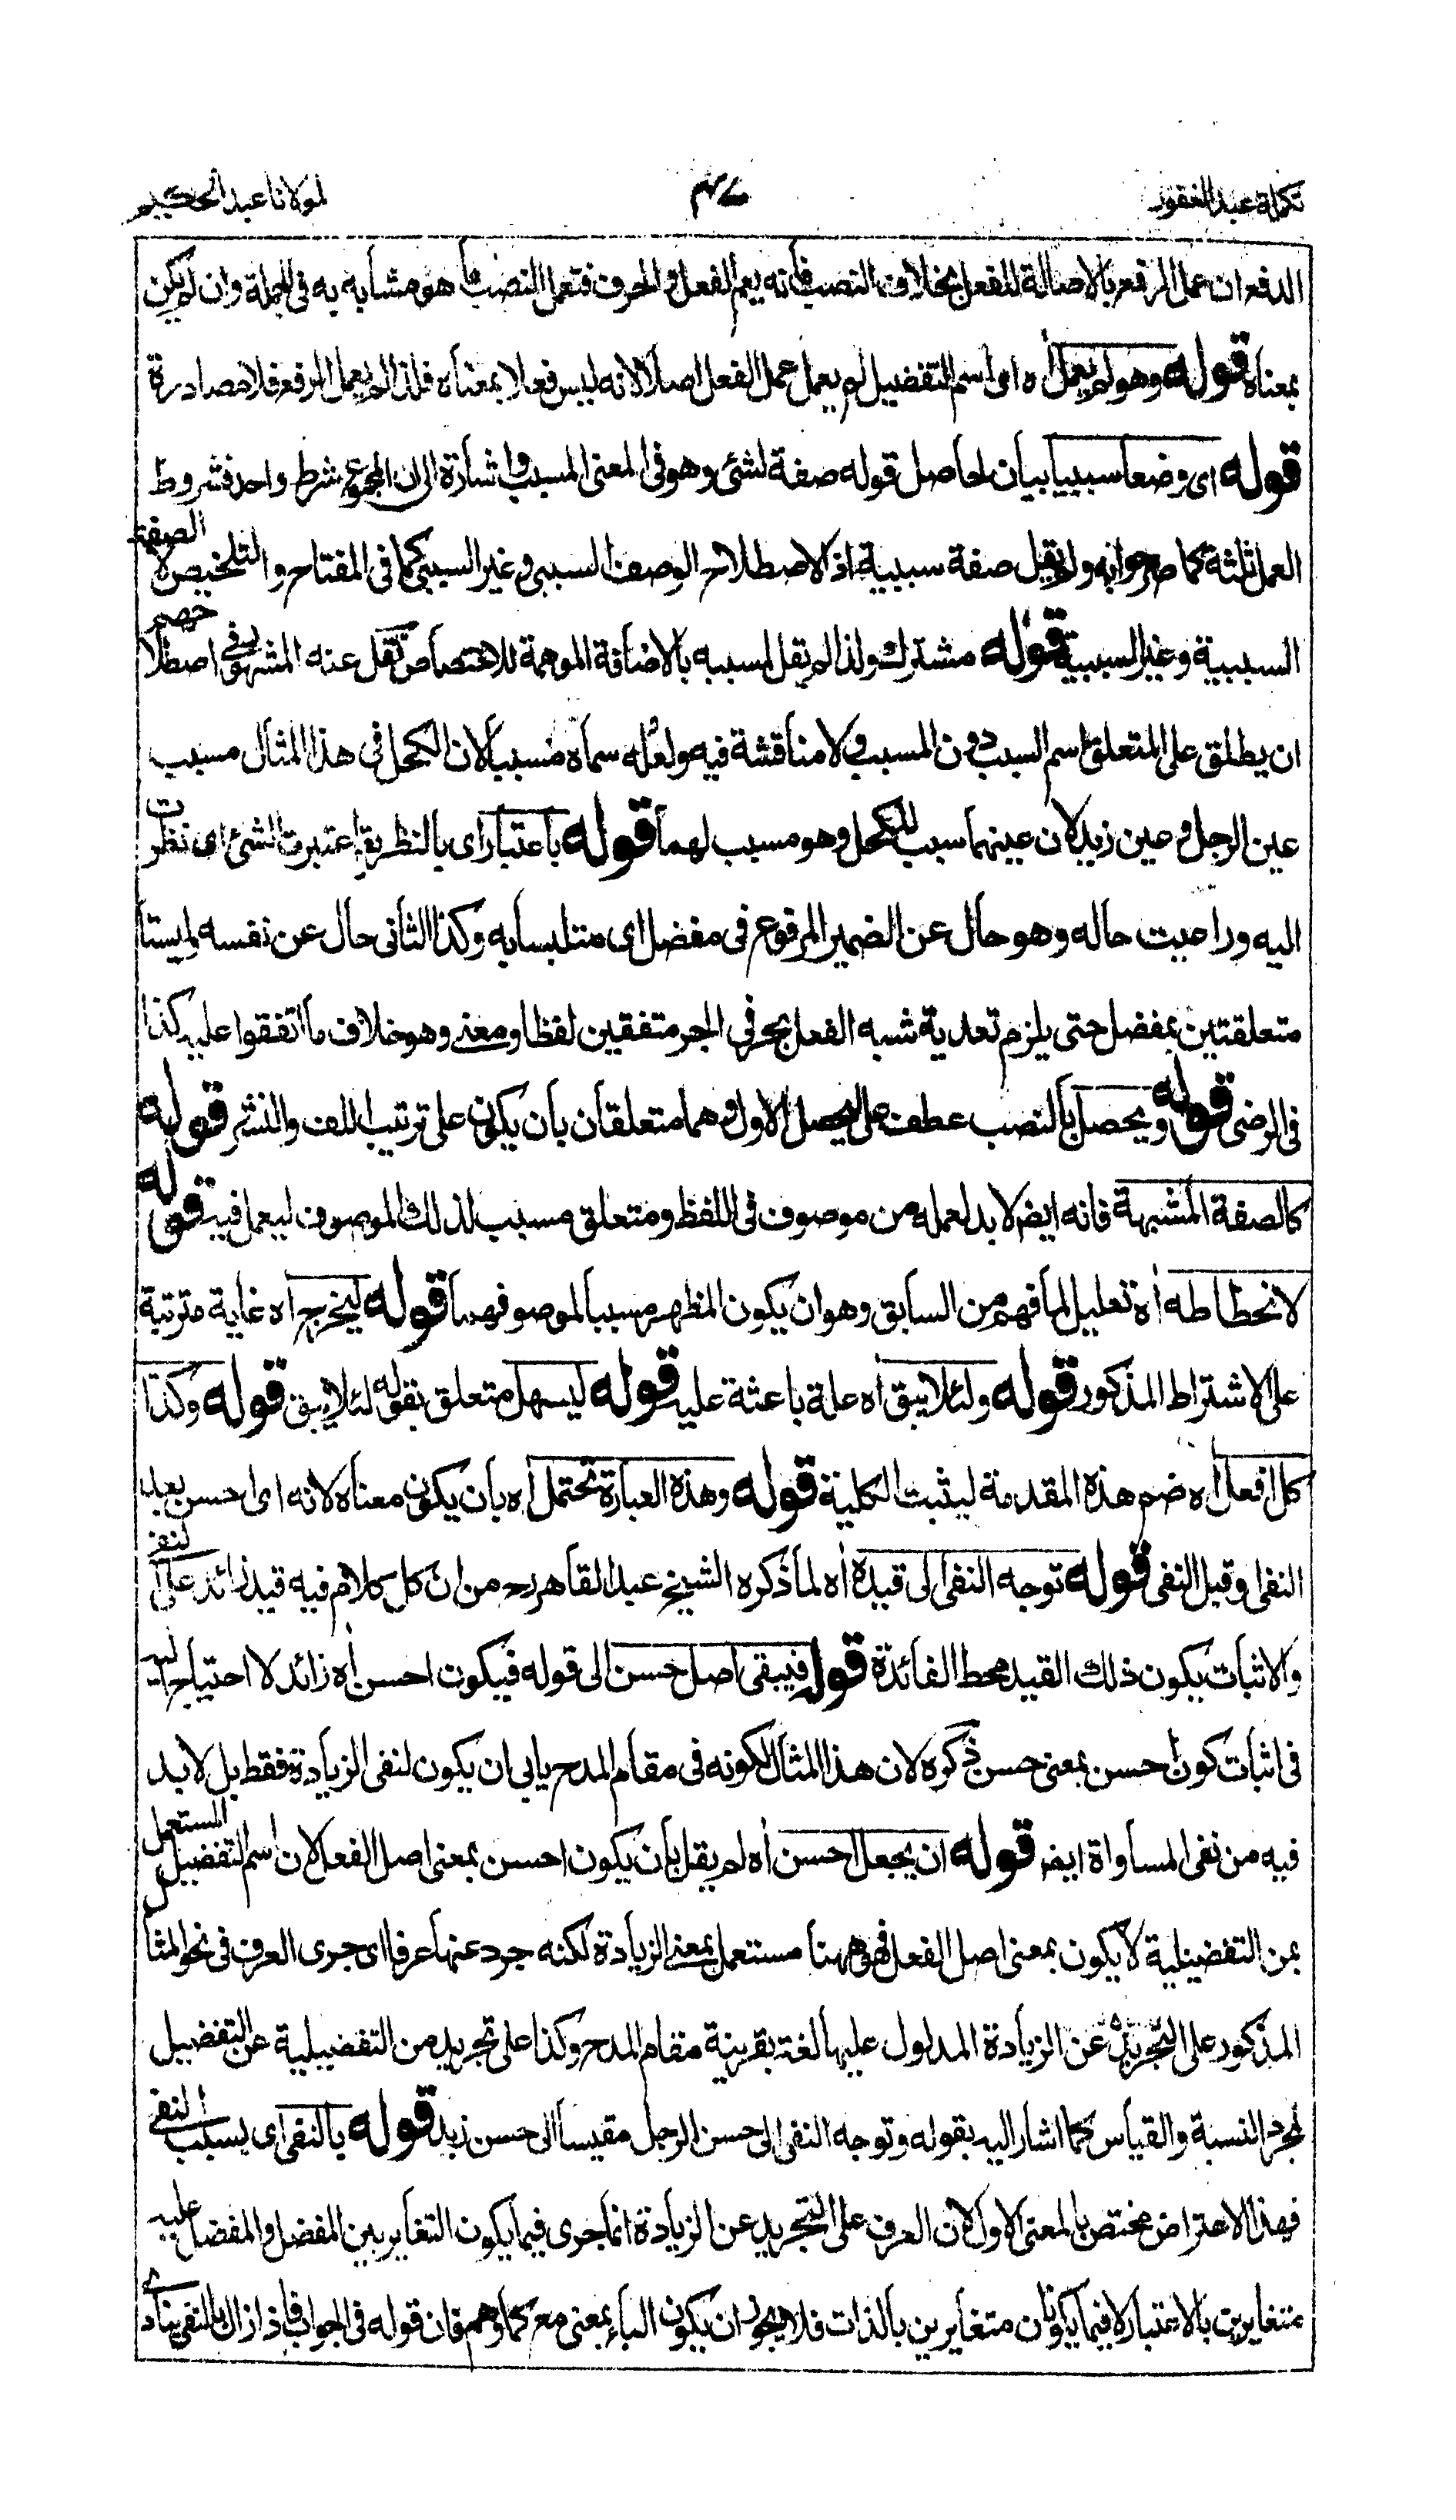 تكملة عبد الغفور
لمولانا عبد الحكيم
الدفع ان عمل الرفع بالاصالة للفعل بخلاف النصب فأنه يعم الفعل والحرف فتعمل النصب هو مشابه به فى الجملة وان لم يكن
بمعناه قوله وهو لم يعمل اه اى اسم التفضيل لم يعمل عمل الفعل اصلا لانه ليس فعلا بمعناه فلذا لم يعمل الرفع فلا مصادرة
قوله اى وضعا سببيا بيان لحاصل قوله صفة لشئ وهو فى المعنى المسبب واشارة الى ان المجموع شرط واحد فشروط
العمل ثلثة كما صرحوا به ولم يقل صفة سببية اذ الاصطلاح الوصف السببى وغير السببى كما فى المفتاح والتلخيص لا الصفة
السببية وغير السببية قوله مشترك ولذا لم يقل لمسببه بالاضافة الموهمة للاختصاص نقل عنه المشهور فى اصطلاحهم
ان يطلق على المتعلق اسم السبب دون المسبب ولا مناقشة فيه ولعله سماه مسببا لان الكحل فى هذا المثال مسبب
عين الرجل وعين زيد لان عينهما سبب للكحل وهو مسبب لهما قوله باعتبار اى بالنظر يق اعتبرت الشئ اى نظرت
اليه وراعيت حاله وهو حال عن الضمير المرفوع فى مفضل اى متلبسا به وكذا الثانى حال عن نفسه وليستا
متعلقتين بمفضل حتى يلزم تعدية شبه الفعل بحرفى الجر متفقين لفظا ومعنى وهو خلاف ما اتفقوا عليه كذا
فى الرضى قوله ويحصل بالنصب عطف على يحصل الاول وهما متعلقان بان يكون على ترتيب اللف والنشر قوله
كالصفة المشبهة فانه ايضا لا بد لعمله من موصوف فى اللفظ ومتعلق مسبب لذلك الموصوف ليعمل فيه قوله
لانحطاطه اه تعليل لما فهم من السابق وهو ان يكون المظهر مسببا لموصوفها قوله ليخرج اه غاية مترتبة
على الاشتراط المذكور قوله ولئلا يبق اه علة باعثة عليه قوله ليسهل متعلق بقوله لئلا يبق قوله وكذا
كل افعل اه ضم هذه المقدمة ليثبت الكلية قوله وهذه العبارة تحتمل اه بأن يكون معناه لانه اى احسن بعد
النفى او قبل النفى قوله توجه النفى الى قيده اه لما ذكره الشيخ عبد القاهر رح من ان كل كلام فيه قيد زائد على النفى
والاثبات يكون ذلك القيد محط الفائدة قوله فيبقى اصل حسن الى قوله فيكون احسن اه زائد لا احتياج اليه
فى اثبات كون احسن بمعنى حسن ذكره لان هذا المثال لكونه فى مقام المدح يابى ان يكون لنفى الزيادة فقط بل لا بد
فيه من نفى المساواة ايضا قوله ان يجعل احسن اه لم يقل بأن يكون احسن بمعنى اصل الفعل لان اسم التفضيل المستعمل
بمن التفضيلية لا يكون بمعنى اصل الفعل فهو ههنا مستعمل بمعنى الزيادة لكنه جرد عنها عرفا اى جرى العرف فى نحو المثال
المذكور على التجريد عن الزيادة المدلول عليها لغة بقرينة مقام المدح وكذا على تجريد من التفضيلية عن التفضيل
لمجرد النسبة والقياس كما اشار اليه بقوله وتوجه النفى الى حسن الرجل مقيسا الى حسن زيد قوله بالنفى اى بسبب النفى
فهذا الاعتراض مختص بالمعنى الاول لان العرف على التجريد عن الزيادة انما جرى فيما يكون التغاير بين المفضل والمفضل عليه
متغايرين بالاعتبار لا فيما يكونان متغايرين بالذات فلا يجوز ان يكون الباء بمعنى مع كما وهم فان قوله فى الجواب فاذا زال بالنفى ينادى